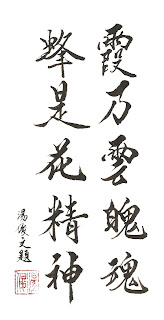 霞乃雲魄魂
蜂是花精神
湯俊文題